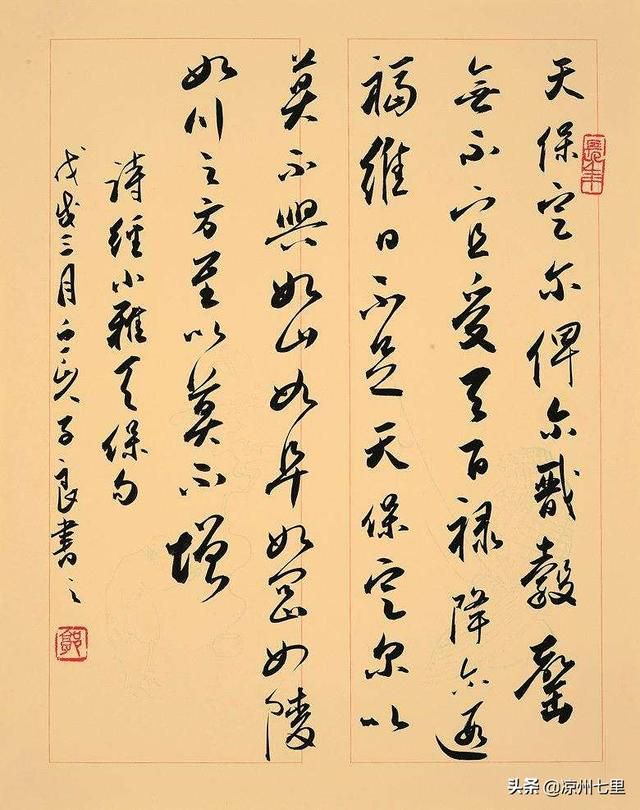 天保定尔俾尔戩穀罄
無不宜受天百禄降尔遐
福維日不足天保定尔以
莫不興如山如阜如岡如陵
如川之方至以莫不增
詩經小雅天保句
戊戌三月子良書之
头条 @凉州七里